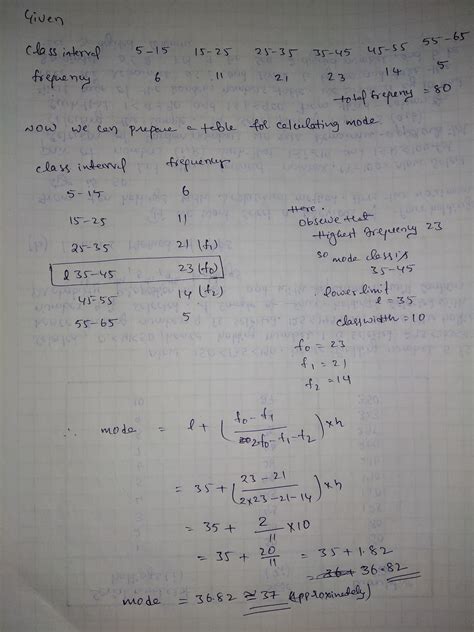 Given
Class interval 5-15 15-25 25-35 35-45 45-55 55-65
frequency 6 11 21 23 14 5
total frequency = 80
Now we can prepare a table for calculating mode
class interval frequency
5-15 6
15-25 11
25-35 21 (f1)
l 35-45 23 (f0)
45-55 14 (f2)
55-65 5
Here.
observe that
Highest frequency 23
so mode class is
35-45
. lower limit
l = 35
class width = 10
f0 = 23
f1 = 21
f2 = 14
∴ mode = l + (f0 - f1 / 2f0 - f1 - f2) × h
= 35 + (23 - 21 / 2×23 - 21 - 14) × h
= 35 + 2/11 × 10
= 35 + 20/11 = 35 + 1.82
= 36.82
mode = 36.82 ≅ 37 (Approximately)